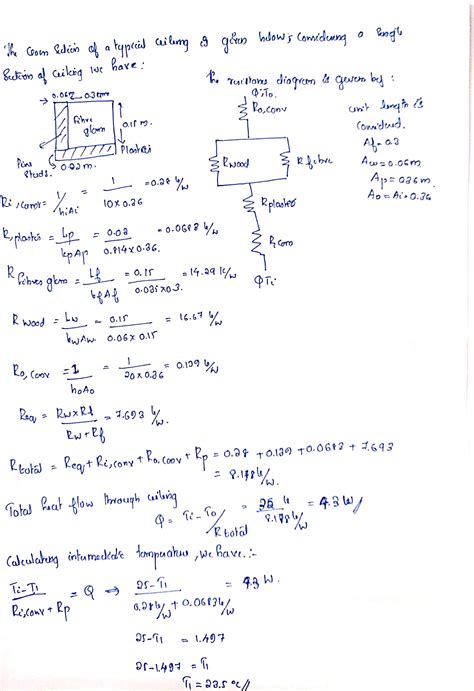 The Cross Section of a typical ceiling is given below; Considering a Single
Section of Ceiling we have:
The resistance diagram is given by:
0.06
0.3m
Fibre
glom
0.15 m.
Plaster
Pine
Studs.
0.02m.
Ti,To.
Ro,conv
Rwood
Rfibre
Rplaster
Ri,conv
Ti
unit length is
Considered.
Af = 0.3
Aw = 0.06m.
Ap = 0.36m.
Ao = Ai = 0.36
Ri,conv = 1/hiAi = 1/10x0.36 = 0.28 k/w
R,plaster = Lp/kpAp = 0.02/0.814x0.36 = 0.0683 k/w
R fibres glom = Lf/kfAf = 0.15/0.035x0.3 = 14.29 k/w
R wood = Lw/kwAw = 0.15/0.06 x 0.15 = 16.67 k/w
Ro, conv = 1/hoAo = 1/20x0.36 = 0.139 k/w
Req = Rw x Rf/Rw + Rf = 7.693 k/w
Rtotal = Req + Ri,conv + Ro,conv + Rp = 0.28 + 0.139 + 0.0683 + 7.693
= 8.178 k/w
Total heat flow through ceiling
Q = Ti - To/Rtotal = 35 k/8.178 k/w = 4.3 w//
Calculating intermediate temperature, we have:-
Ti - T1/Ri,conv + Rp = Q ⇒ 25 - T1/0.28 k/w + 0.0683 k/w = 4.3 W.
25 - T1 = 1.497
25 - 1.497 = T1
T1 = 23.5 °C//